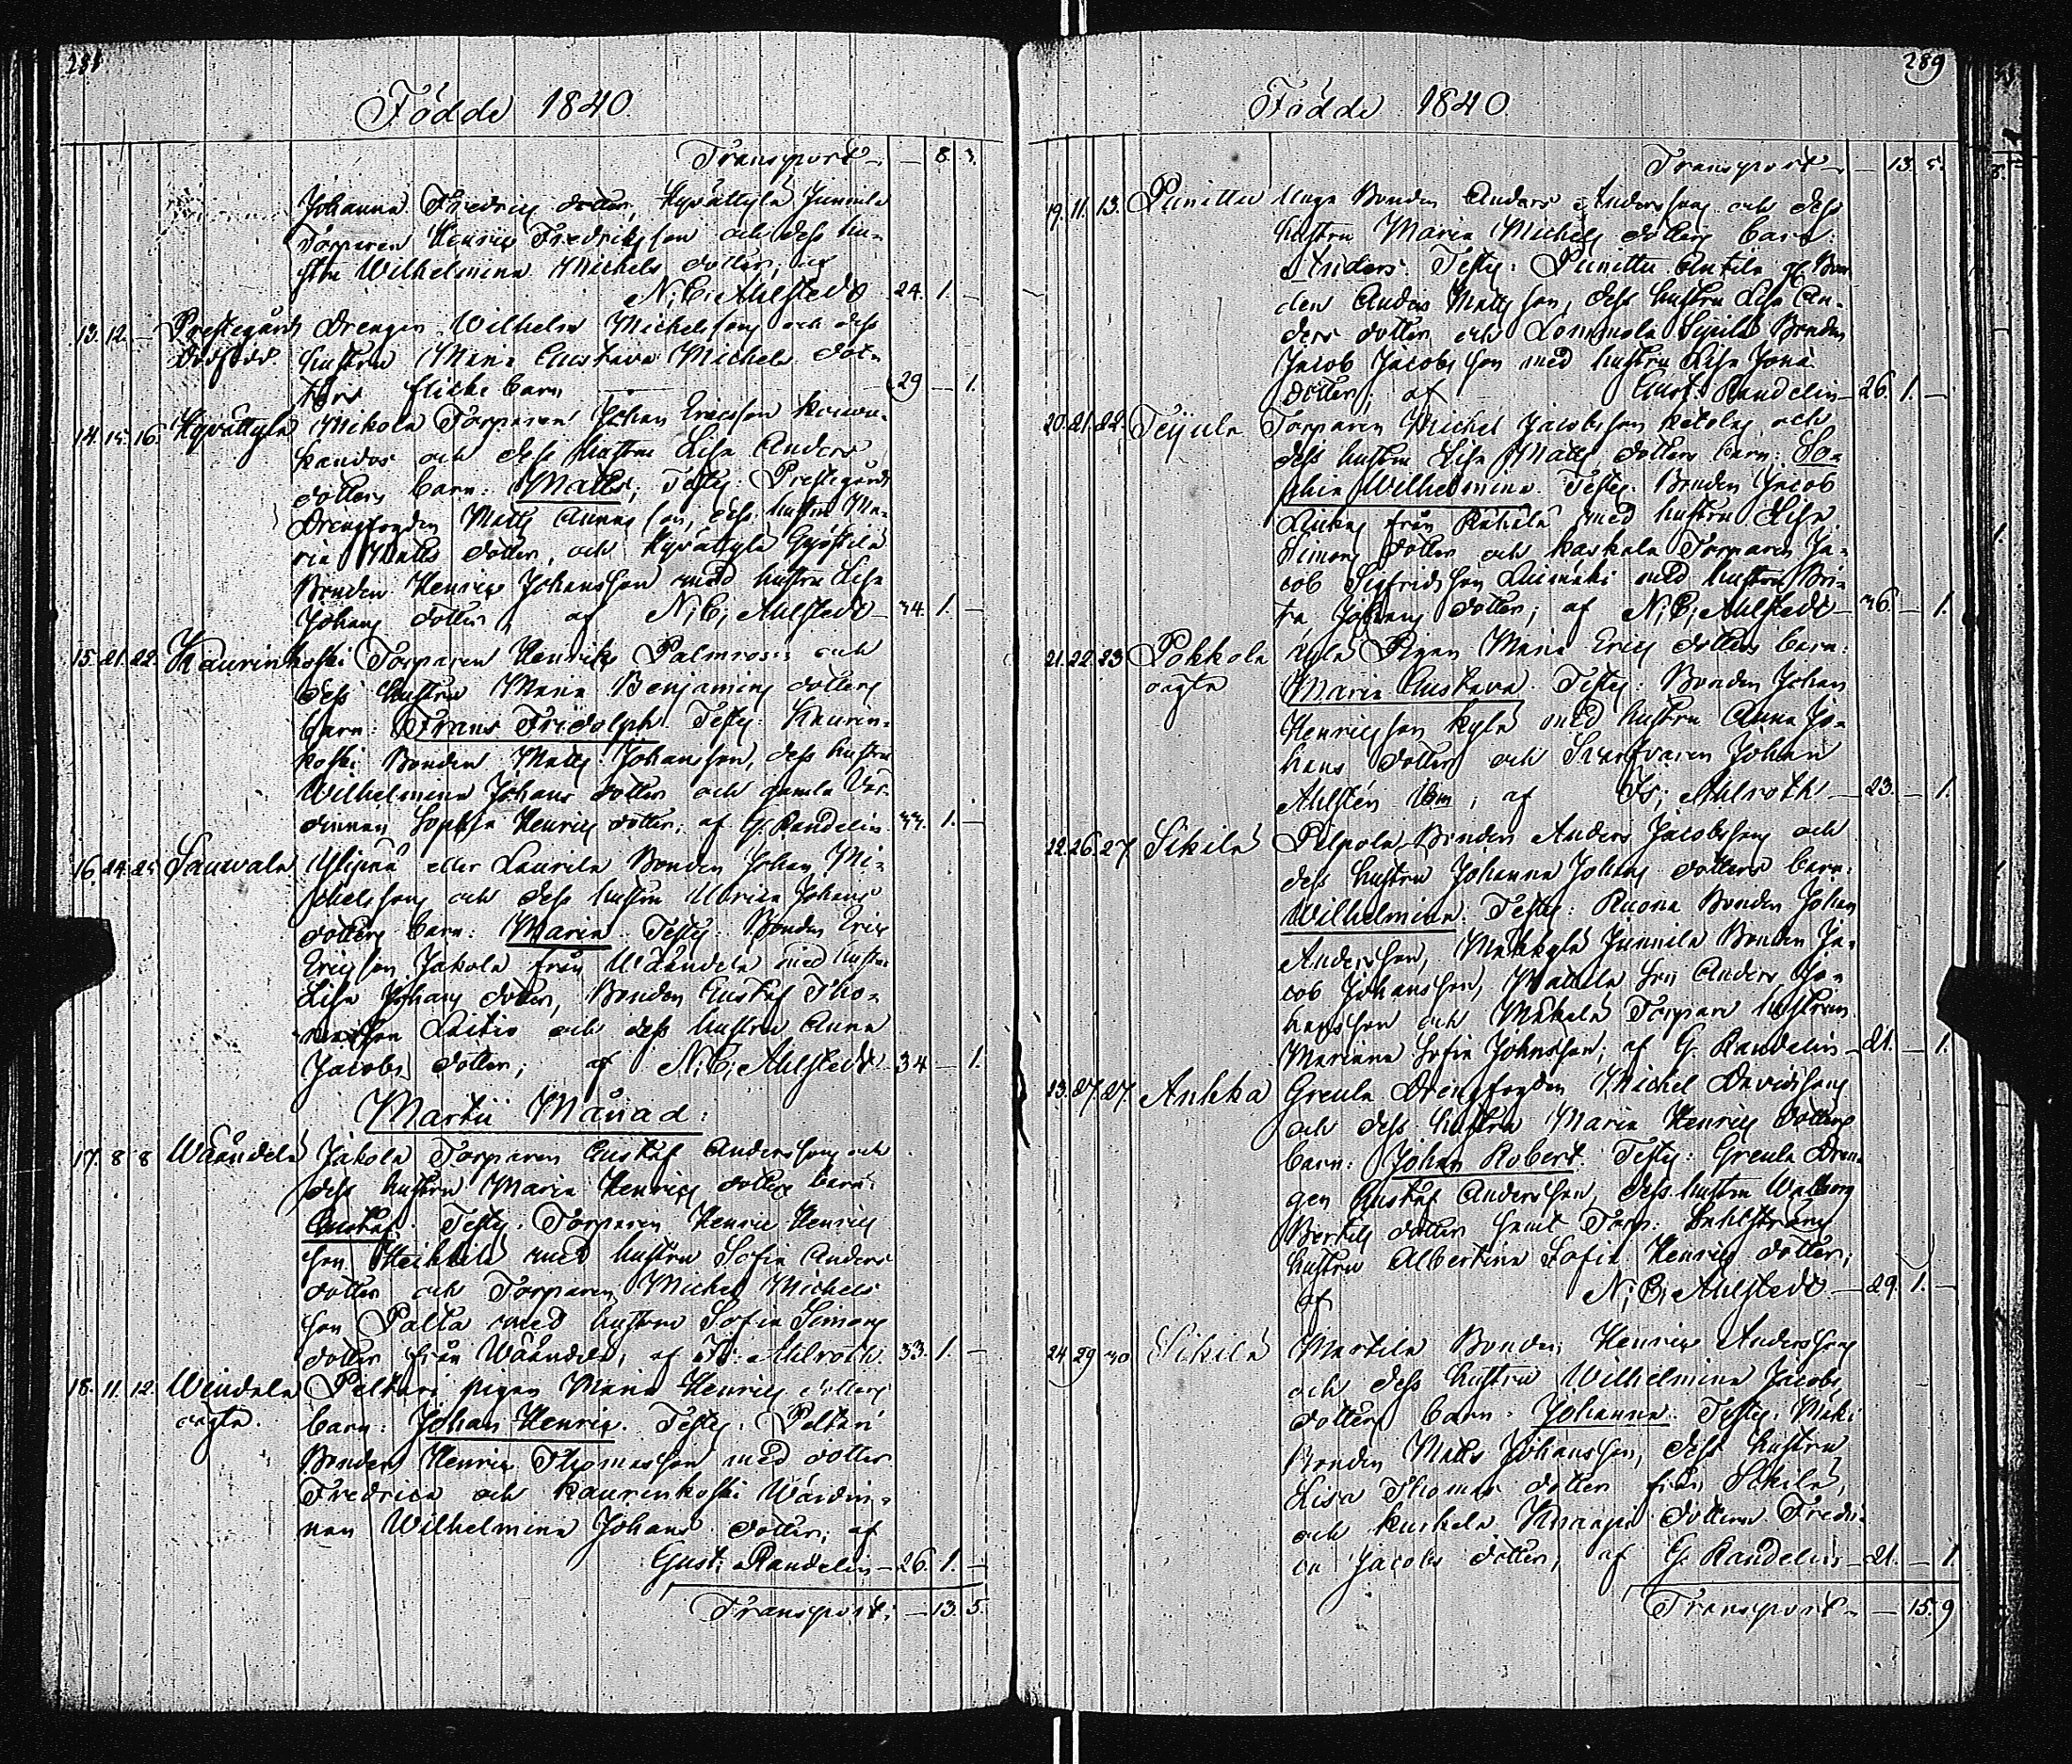 Födde 1840.
Transport — 8. 3.
Johanna Fredrics dotter, Hyvättylä Junnila
Torparen Henric Fredriksson och dess hu-
stru Wilhelmina Michels dotter, af
N. C. Ahlstedt 24. 1. —
13. 12. — Prestegårds Drengen Wilhelm Michelssons och dess
dödfödt. hustru Maria Gustava Michels dot-
ters flicke barn 29 — 1.
14. 15. 16. Hyvättylä Mikola Torparen Johan Ericsson
och dess hustru Lisa Anders
dotters barn: Matts, Test: Prestegårds
Drengfogden Matts son, dess hustru Ma-
ria Matts dotter, och Hyvättylä
Bonden Henric Johansson med hustru Lisa
Johans dotter, af N. C. Ahlstedt 34. 1. —
15. 21. 22. Kaurinkoski Torparen Henriks Palmroos och
dess hustru Maria Benjamins dotters
barn: Frans Fridolph Test: Kaurin-
koski Bonden Matts Johansson, dess hustru
Wilhelmina Johans dotter och gamla Vär-
dinnan Sophia Henrics dotter; af G. Randelin 1. —
16. 24. 25 Sauvala Ylijpää eller Laurila Bonden Johan Mi-
chelssons och dess hustru Ulrica Johans
dotters barn: Maria. Test: Bonden Eric
Ericsson Jakola från Wäändelä med hustru
Lisa Johans dotter, Bonden Gustaf Tho-
masson Laitio och dess hustru Anna
Jacobs dotter; af N. C. Ahlstedt 34 — 1.
Martii Månad:
17. 8 8 Wäändelä Jakola Torparen Gustaf Anderssons och
dess hustru Maria Henrics dotters barn
Gustaf. Test: Torparen Henric Henrics
son Heikkilä med hustru Sofia Anders
dotter och Torparen Michel Michels
son Palta med hustru Sofia Simons
dotter från Wäändelä; af Is: Ahlroth 33. 1. —
18. 11. 12. Wendelä Peltari pigan Maria Henrics dotters
oägta. barn: Johan Henric. Test: Peltari
Bonden Henric Thomasson med dotter
Fredrica och Kaurenkoski Wärdin-
nan Wilhelmina Johans dotter; af
Gust. Randelin — 26. 1. —
Transport; — 13. 5.
289
Födde 1840.
Transport — 13. 5.
19. 11. 13. Punittu Unga Bonden Anders Anderssons och dess
hustru Maria Michels dotters barn:
Anders. Test: Punittu Antila gl. Bon
den Anders Mattsson, dess hustru Lisa An-
ders dotter och Lommola Bonden
Jacob Jacobsson med hustru Lisa Jona
dotter; af Gust. Randelin — 26. 1. —
20. 21. 22. Teijula Torparen Michel Jacobsson Ketolas och
dess hustru Lisa Matts dotters barn: So-
phia Wilhelmina. Test: Bonden Jacob
från med hustru Lisa
Simons dotter och Kaskala Torparen Ja-
cob Sigfridsson Luimäki med hustru Bri-
ta Johans dotter; af N. C. Ahlstedt — 36. — 1.
21. 22. 23 Pokkola Kylä Pigan Maria Erics dotters barn:
oägta Maria Gustava. Test: Bonden Johan
Henricsson Kylä med hustru Anna Jo-
hans dotter och Svarfvaren Johan
Ahlstén af Is; Ahlroth — 23. — 1.
22. 26. 27. Sikilä Pelpola Bonden Anders Jacobssons och
dess hustru Johanna Johans dotters barn:
Wilhelmina. Test: Ruona Bonden Johan
Andersson, Mäkkylä Junnila Bonden Ja-
cob Johansson, Mattila son Anders Jo-
hansson och Mäkelä Torpare hustrun
Mariana Sofia Johnsson; af G. Randelin — 21. — 1.
13. 27. 27. Anhka Greula Drengfogden Michel Davidssons
och dess hustru Maria Henrics dotters
barn: Johan Robert. Test: Greula Dren-
gen Gustaf Andersson, dess hustru Walborg
Bertils dotter samt Torp:
hustru Albertina Sofia Henrics dotter;
af N. C. Ahlstedt — 29. 1. —
24 29 30 Sikilä Martila Bonden Henric Anderssons
och dess hustru Wilhelmina Jacobs
dotters barn: Johanna. Test: Mäki
Bonden Matts Johansson, dess hustru
Lisa Thomas dotter från Sikilä,
och Kuskela Knaapi dottren Fredri-
ca Jacobs dotter; af G. Randelin — 21. — 1
Transport — — 15. 9